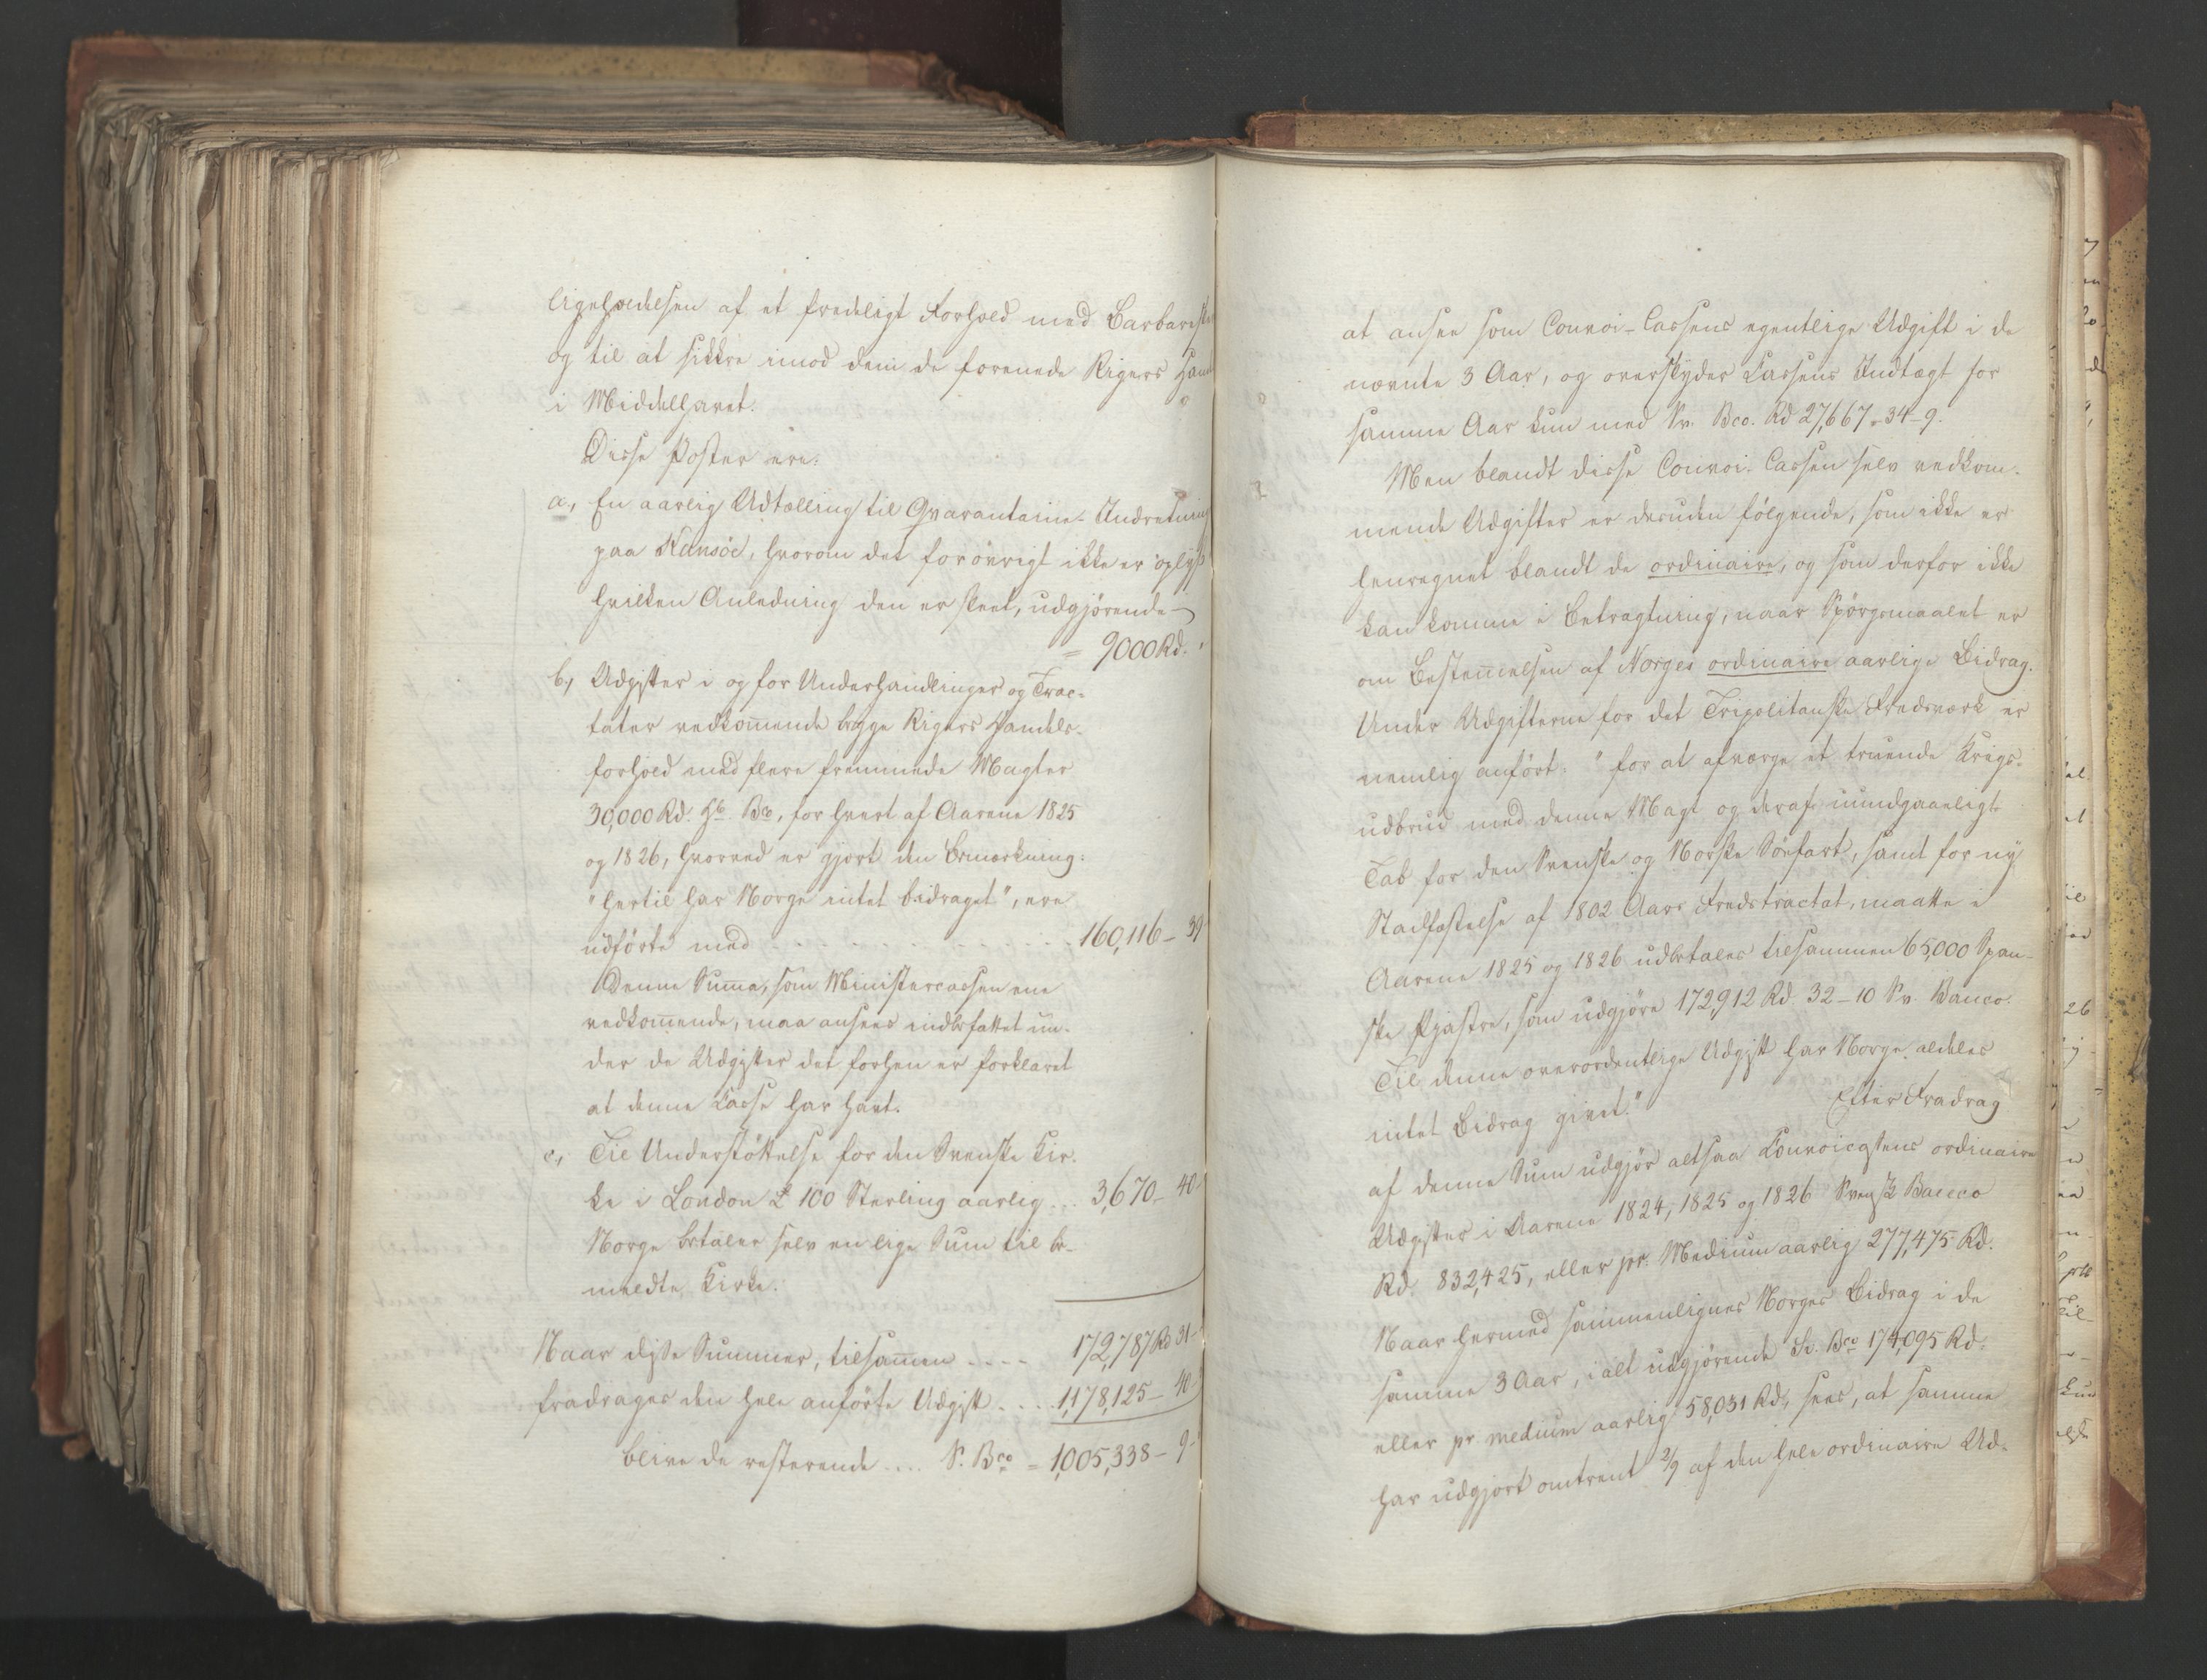 ligeholdelsen af et fredeligt Forhold med Barbaresker
og til at sikkre imod dem de forenede Rigers Handel
i Middelhavet.
Disse Poster ere:
a, En aarlig Udtælling til Qvarantaine-Indretning
paa Kansöe, hvorom det forövrigt ikke er oplyst
hvilken Anledning den er skeet, udgjörende
= 9000 Rd.
b, Udgifter i og for Underhandlinger og Trac-
tater vedkommende begge Rigers Handels-
forhold med flere fremmede Magter
30,000 Rd. Hb. Bco, for hvert af Aarene 1825
og 1826, hvorved er gjort den Bemærkning:
"hertil har Norge intet bidraget", ere
udförte med - - - - - - 160,116 - 39
Denne Summa, som Ministercassen ene
vedkommende, maa ansees indbefattet un-
der de Udgifter det forhen er forklaret
at denne Casse har havt.
c, Til Understöttelse for den Svenske Kir-
ke i London £ 100 Sterling aarlig ... 3,670 - 40
Norge betaler selv en lige Sum til be-
meldte Kirke.
Naar disse Summer, tilsammen .... 172,787 Rd 31
fradrages den hele anförte Udgift .... 1,178,125 - 40
blive de resterende .... S. Bco = 1,005,338 - 9
at ansee som Convoi-Cassens egentlige Udgift i de
nævnte 3 Aar, og overskyder Cassens Indtægt for
samme Aar kun med Sv. Bco. Rd 27,667 - 34 - 9.
Men blandt disse Convoi-Cassen selv vedkom-
mende Udgifter er desuden fölgende, som ikke er
henregnet blandt de ordinaire, og som derfor ikke
kan komme i Betragtning, naar Spörgsmaalet er
om Bestemmelsen af Norges ordinaire aarlige Bidrag.
Under Udgifterne for det Tripolitanske Fredsværk er
nemlig anfört: "for at afværge et truende Krigs-
udbrud med denne Magt og deraf uundgaaeligt
Tab for den Svenske og Norske Söefart, samt for ny
Stadfæstelse af 1802 Aars Fredstractat, maatte i
Aarene 1825 og 1826 udbetales tilsammen 65,000 Span-
ske Pjastre, som udgjöre 172,912 Rd. 32 - 10 Sv. Banco.
Til denne overordentlige Udgift har Norge aldeles
intet Bidrag givet."
Efter Fradrag
af denne Sum udgjör altsaa Convoicassens ordinaire
Udgifter i Aarene 1824, 1825 og 1826 Svensk Banco
Rd. 832,425, eller pr. Medium aarlig 277,475 Rd.
Naar hermed sammenlignes Norges Bidrag i de
samme 3 Aar, i alt udgjörende Sv. Bco 174,095 Rd.
eller pr medium aarlig 58,031 Rd, sees, at samme
har udgjort omtrent 2/9 af den hele ordinaire Ud-